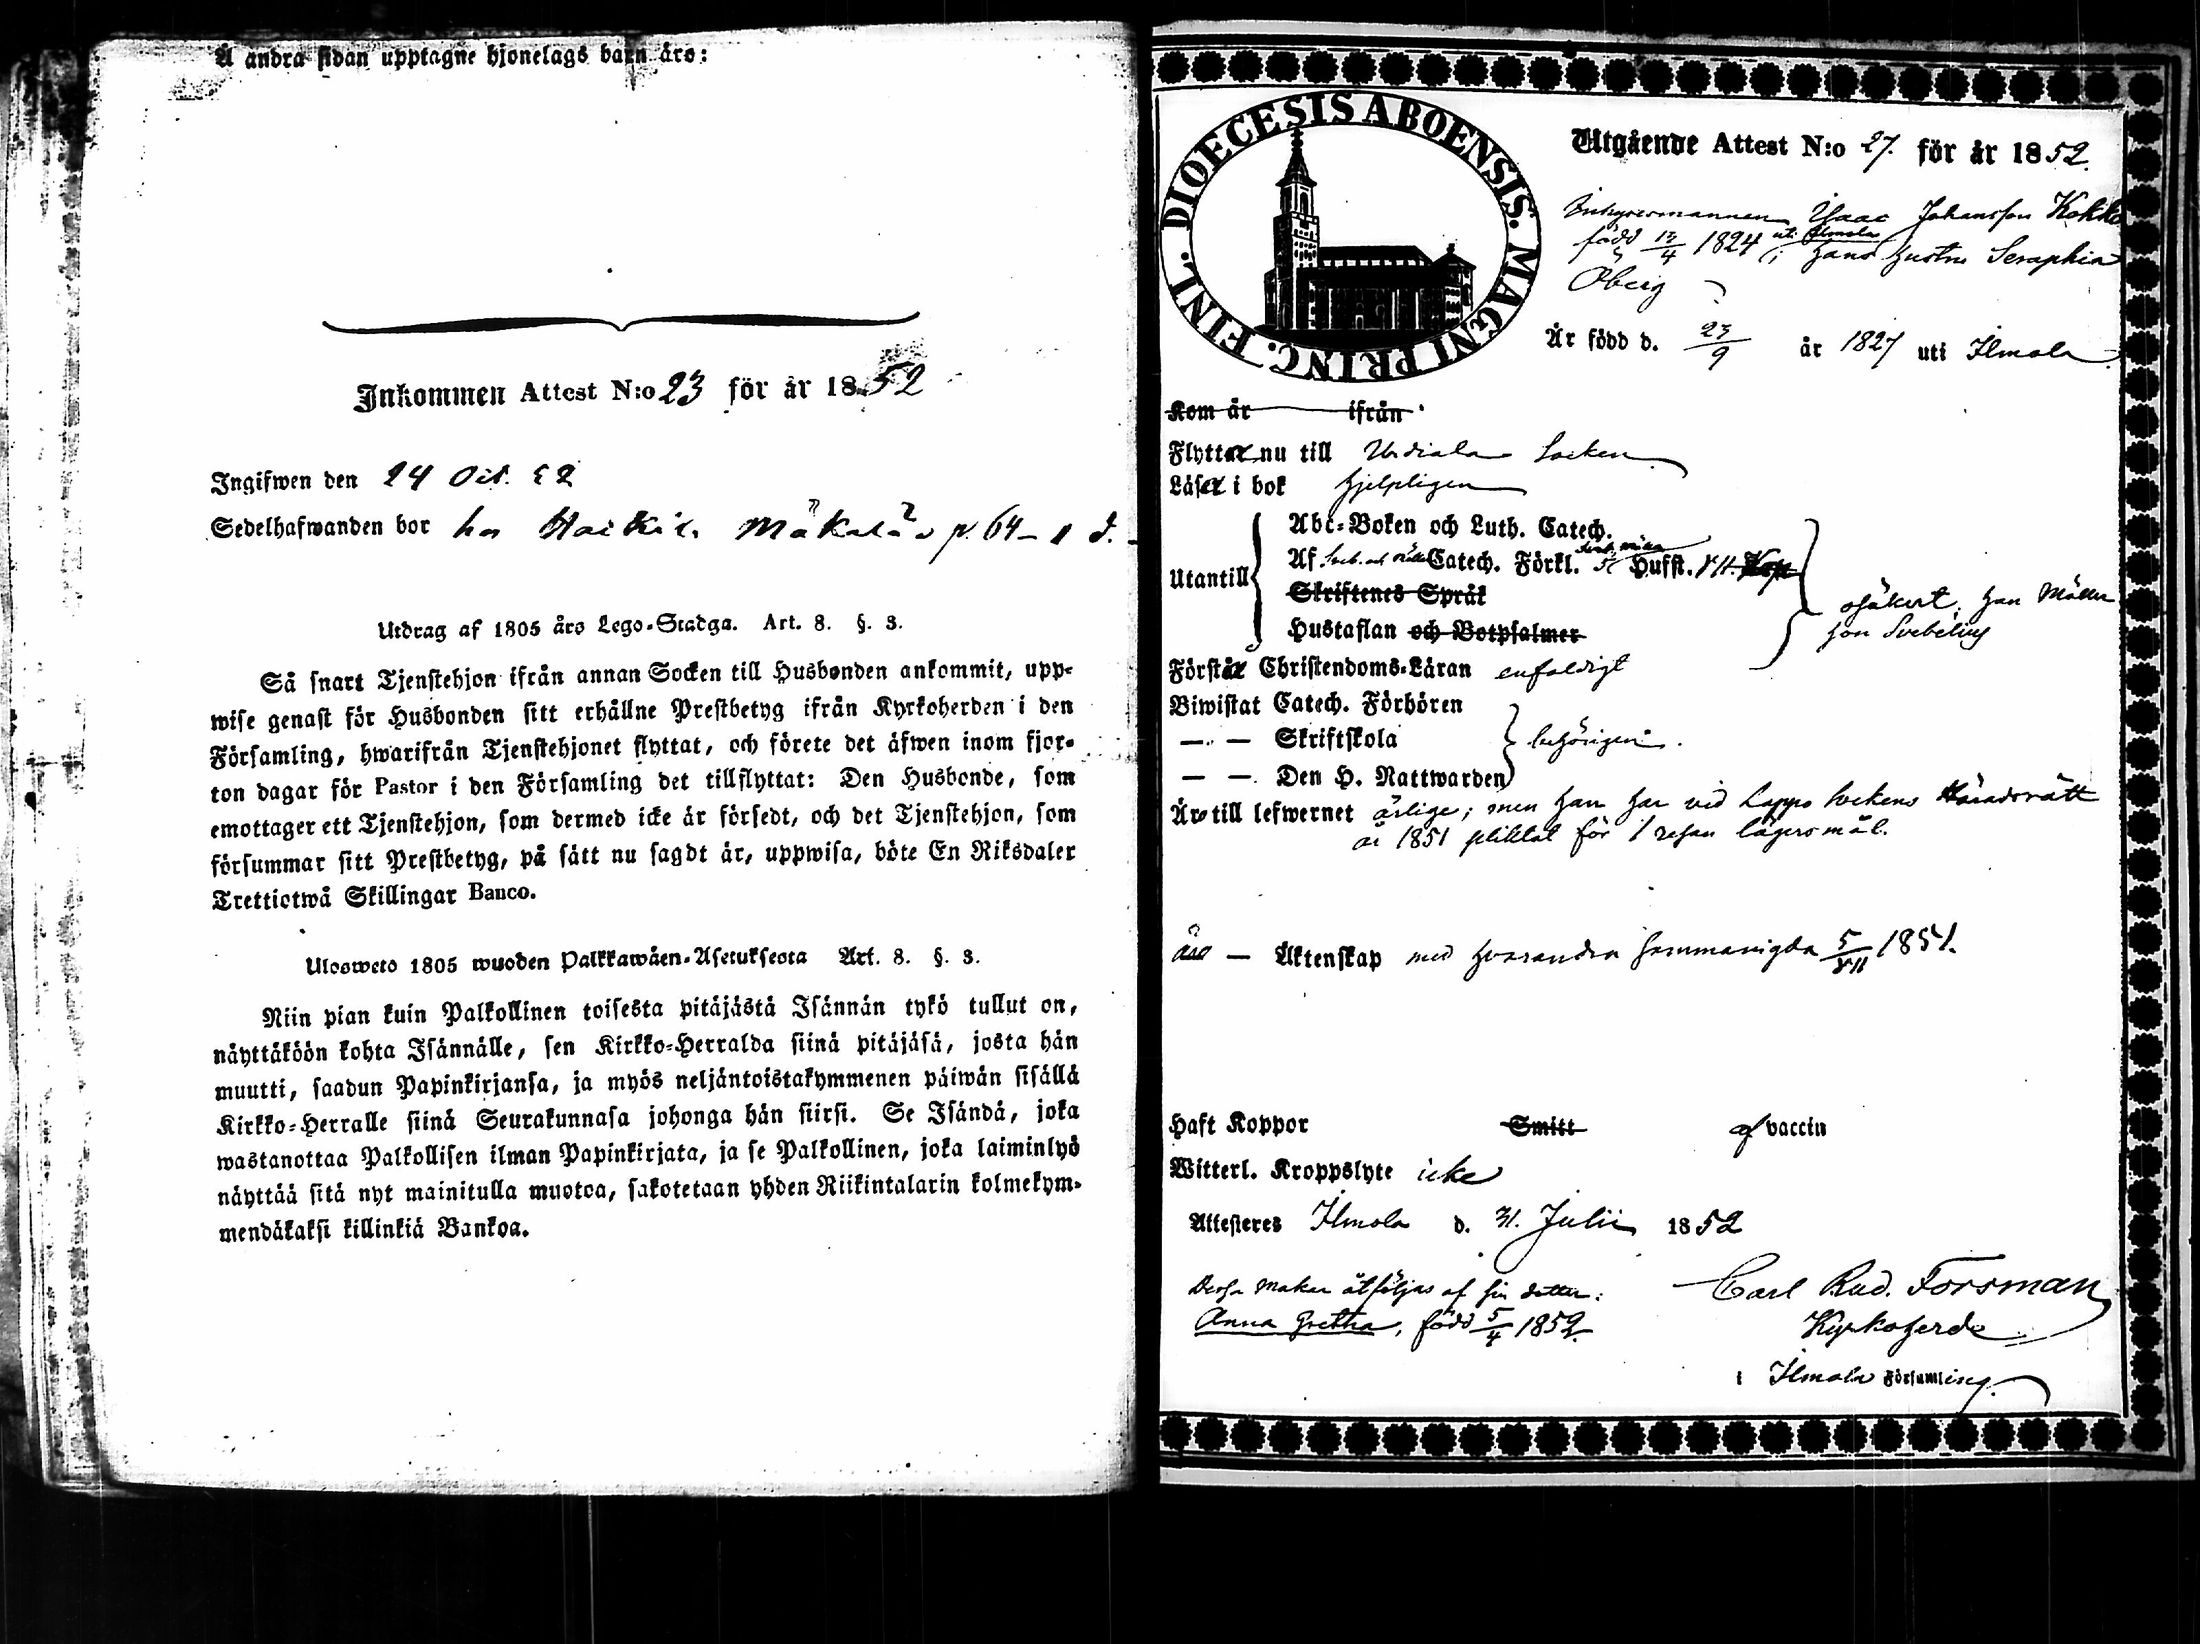 Å andra sidan upptagne hjonelags barn äro:
Inkommen Attest N:o 23 för år 1852
Ingifwen den 24 Oct. 52
Sedelhafwanden bor hos Heikki Mäkelä p. 64
Utdrag af 1805 års Lego-Stadga. Art. 8. §. 3.
Så snart Tjenstehjon ifrån annan Socken till Husbonden ankommit, upp-
wise genast för Husbonden sitt erhållne Prestbetyg ifrån Kyrkoherden i den
Församling, hwarifrån Tjenstehjonet flyttat, och förete det äfwen inom fjor-
ton dagar för Pastor i den Församling det tillflyttat: Den Husbonde, som
emottager ett Tjenstehjon, som dermed icke är försedt, och det Tjenstehjon, som
försummar sitt Prestbetyg, på sätt nu sagdt är, uppwisa, böte En Riksdaler
Trettiotwå Skillingar Banco.
Ulosweto 1805 wuoden Palkkawäen-Asetuksesta Art. 8. §. 3.
Niin pian kuin Palkollinen toisesta pitäjästä Isännän tykö tullut on,
näyttäköön kohta Isännälle, sen Kirkko-Herralda siinä pitäjäsä, josta hän
muutti, saadun Papinkirjansa, ja myös neljäntoistakymmenen päiwän sisällä
Kirkko-Herralle siinä Seurakunnasa johonga hän siirsi. Se Isändä, joka
wastanottaa Palkollisen ilman Papinkirjata, ja se Palkollinen, joka laiminlyö
näyttää sitä nyt mainitulla muotoa, sakotetaan yhden Riikintalarin kolmekym-
mendäkaksi killinkiä Bankoa.
DIOECESIS ABOENSIS. MAGNI PRINC. FINL.
Utgående Attest N:o 27. för år 1852.
Inhysesmannen Isaac Johansson Kokko
född 13/4 1824 uti Ilmola; hans hustru Seraphia
Öberg
Är född d. 23/9 år 1827 uti Ilmola
Kom år ifrån
Flytta nu till Urdiala Socken
Läsa i bok hjelpligen
Utantill
Abc-Boken och Luth. Catech.
Af Sveb. och Catech. Förkl. Husst.
Skriftenes Språk
Hustaflan och Botpsalmer
osäkert. han Möller
hon Svebelius
Förstå Christendoms-Läran enfaldigt
Biwistat Catech. Förhören
— — Skriftskola behörigen.
— — Den H. Nattwarden
Äro till lefwernet ärlige; men han har vid Lappo Sockens Häradsrätt
år 1851 pliktat för 1 resan lägersmål.
äro — Äktenskap med hvarandra sammanvigda 5/VII 1851.
Haft Koppor Smitt af vaccin
Witterl. Kroppslyte icke
Attesteres Ilmola d. 31. Julii 1852
Dessa makar åtföljas af sin dotter:
Anna Gretha, född 5/4 1852.
Carl Rud. Forsman
Kyrkoherde
i Ilmola Församling.